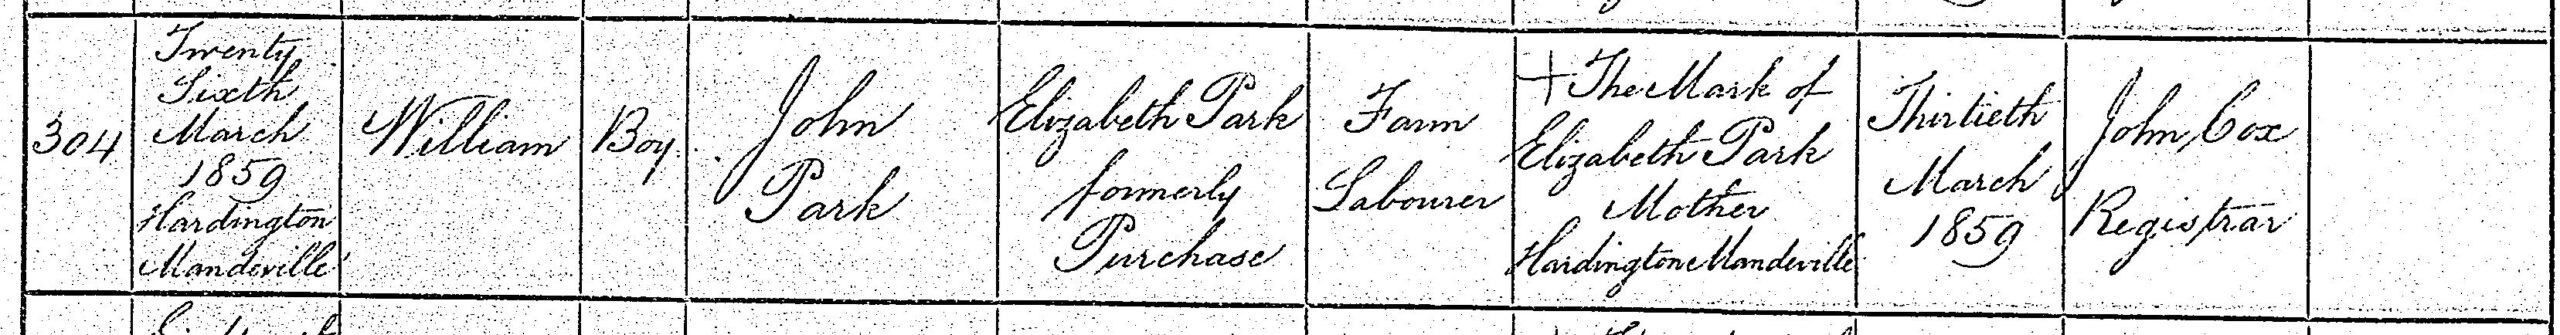 304
Twenty
Sixth
March
1859
Hardington
Mandeville
William
Boy
John
Park
Elizabeth Park
formerly
Purchase
Farm
Labourer
+ The Mark of
Elizabeth Park
Mother
Hardington Mandeville
Thirtieth
March
1859
John Cox
Registrar